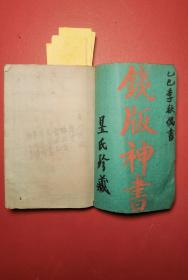 乙巳季秋偶書
錢版神書
星氏珍藏